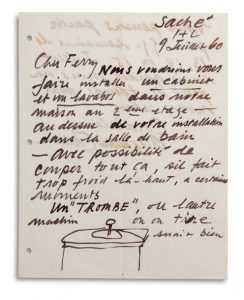 Saché
I+L
9 Juillet 60
Cher Ferry Nous vondrions vous
faire installer un cabinet
et un lavabos dans notre
maison au 2ème etage —
au dessus de votre installation
dans la salle de bain
— avec possibilité de
couper tout ça, sil fait
trop froid là-haut, a certains
moments
Un "TROMBE", ou lautre
machin on on tire
serait bien